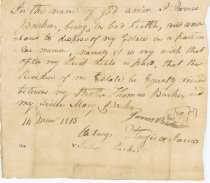 In the name of god amen I James
Barker, being in bad health, and anx
ious to dispose of my Estate in a particu
lar manner, namely it is my wish that
after my Just debts is paid, that the
Residue of my Estate be Equally divided
between my Brother Thomas Barker and
my Sister Mary Barker
James
14 1815